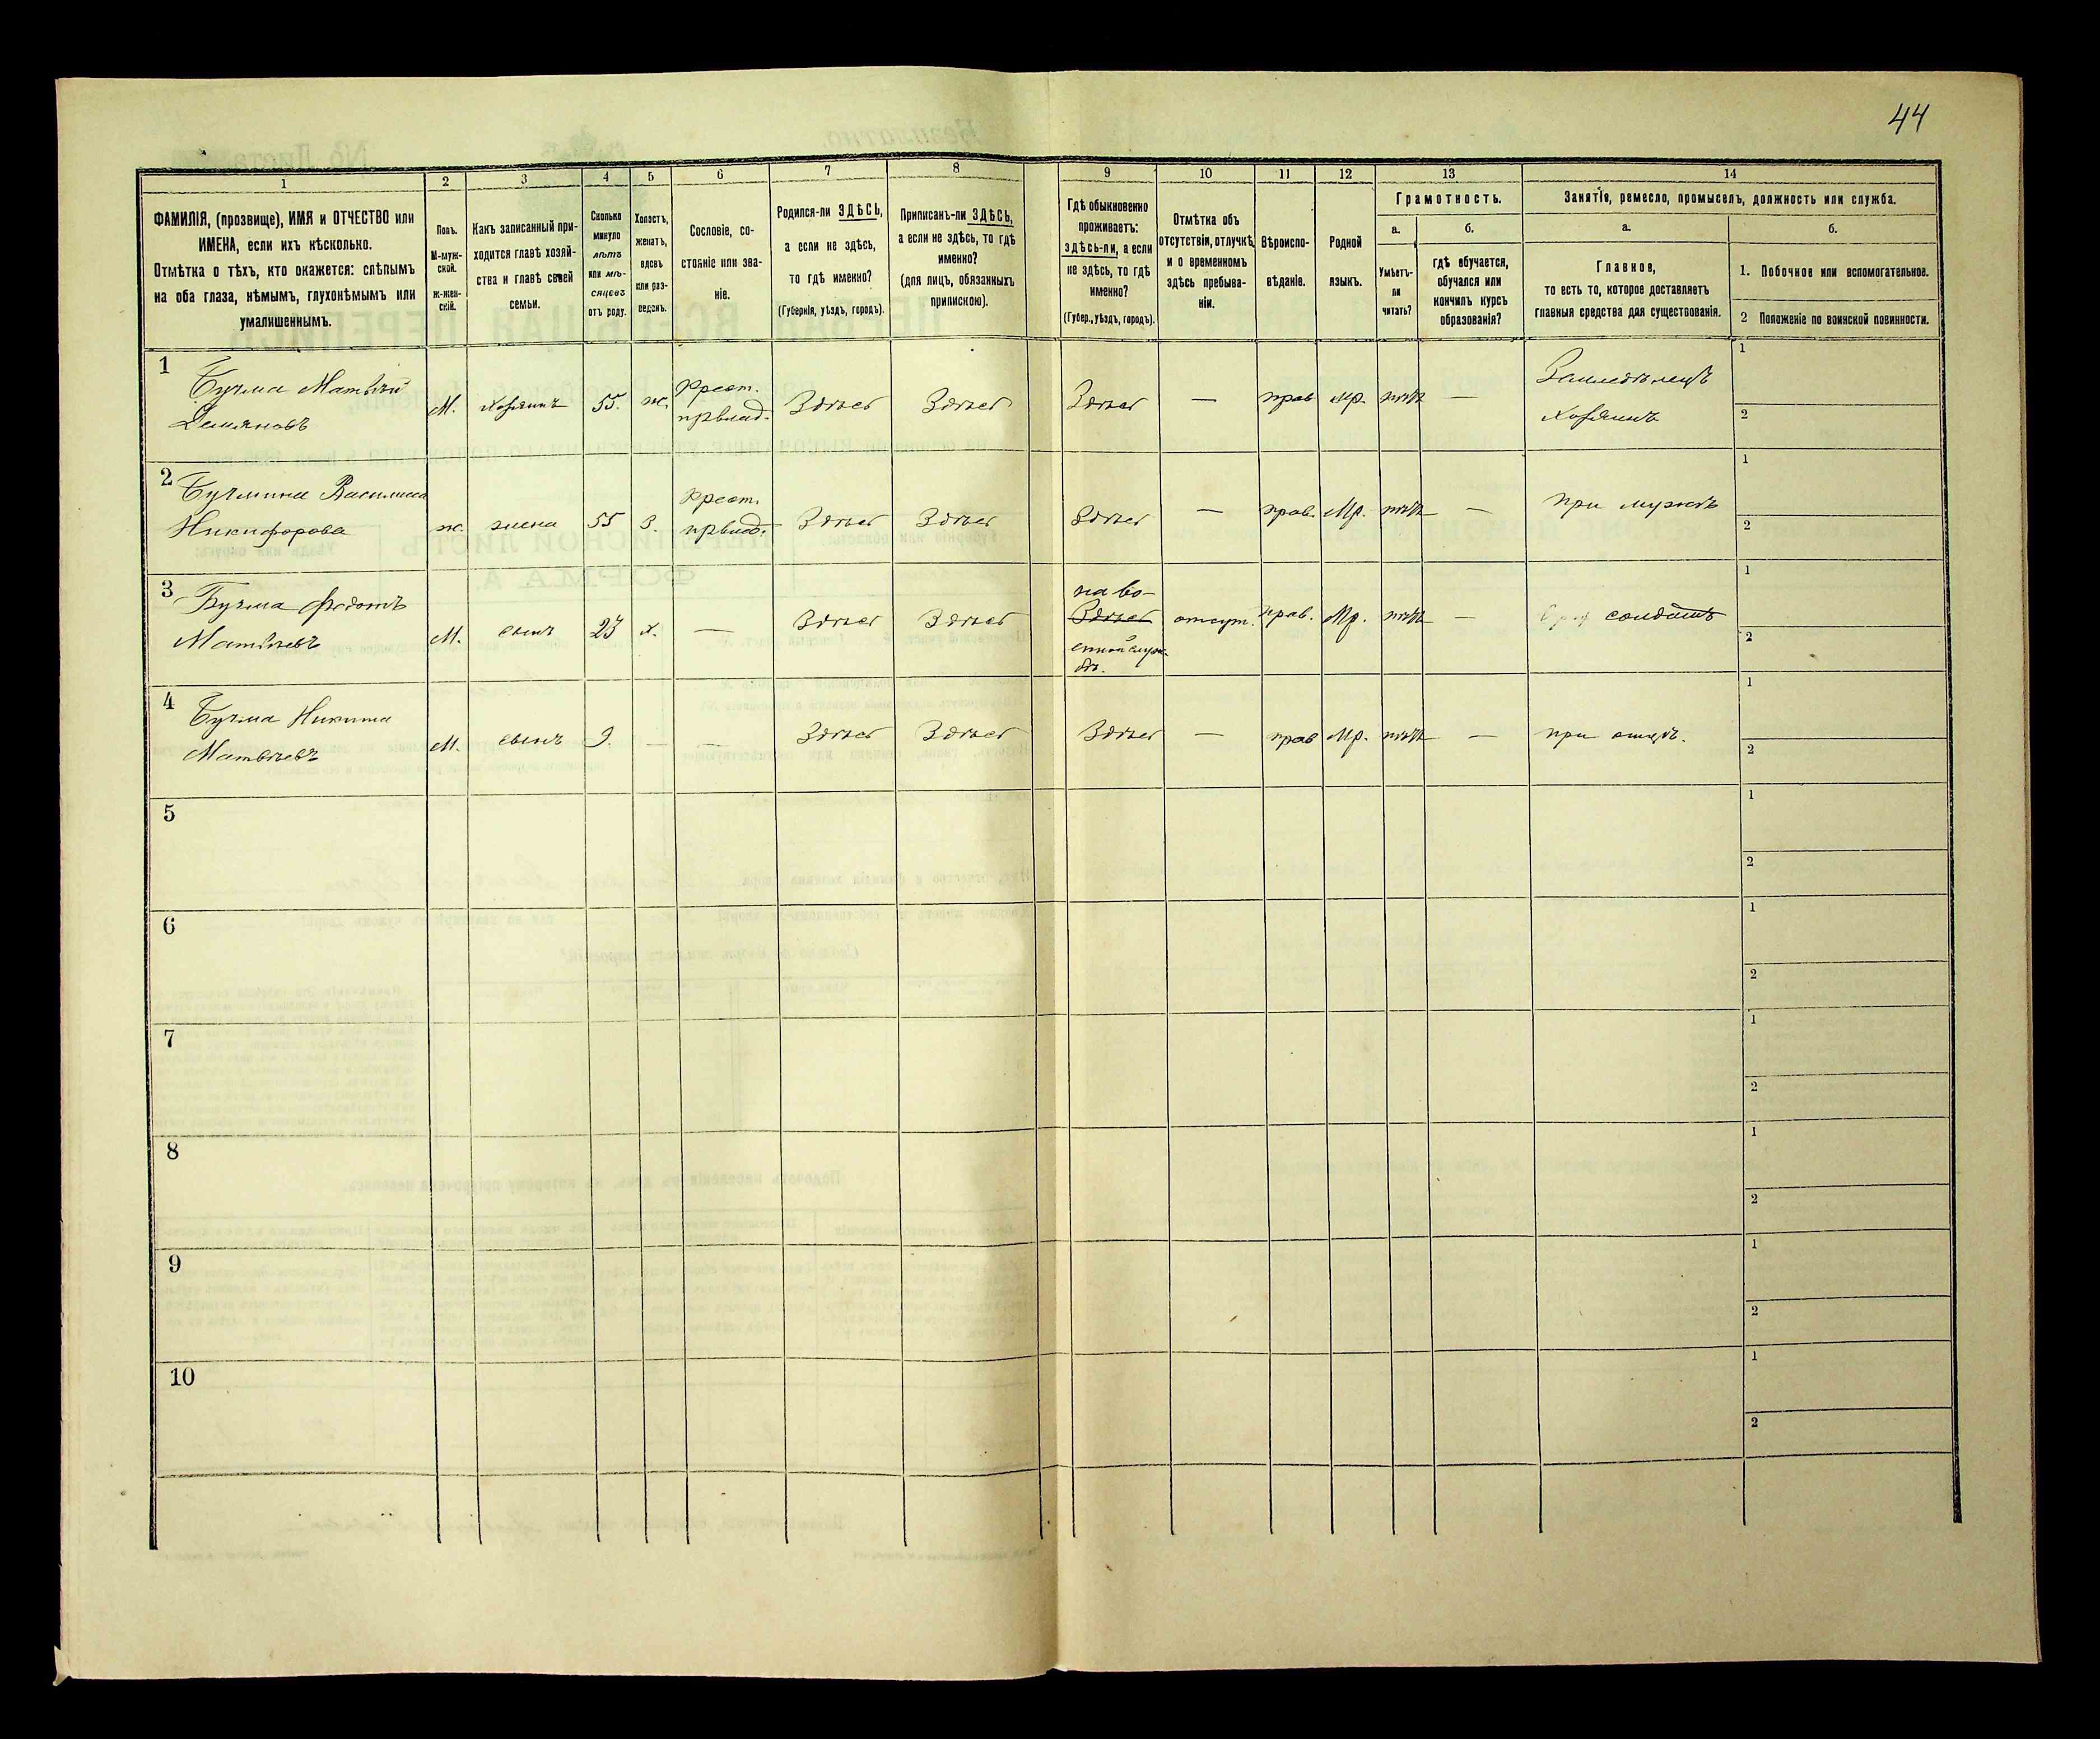 44
1 2 3 4 5 6 7 8 9 10 11 12 13 14
ФАМИЛІЯ, (прозвище), ИМЯ и ОТЧЕСТВО или
ИМЕНА, если ихъ нѣсколько.
Отмѣтка о тѣхъ, кто окажется: слѣпымъ
на оба глаза, нѣмымъ, глухонѣмымъ или
умалишеннымъ.
Полъ.
М-муж-
ской.
Ж-жен-
скій.
Какъ записанный при-
ходится главѣ хозяй-
ства и главѣ своей
семьи.
Сколько
минуло
лѣтъ
или мѣ-
сяцевъ
отъ роду.
Холостъ,
женатъ,
вдовъ
или раз-
веденъ.
Сословіе, со-
стояніе или зва-
ніе.
Родился-ли ЗДѢСЬ,
а если не здѣсь,
то гдѣ именно?
(Губернія, уѣздъ, городъ).
Приписанъ-ли ЗДѢСЬ,
а если не здѣсь, то гдѣ
именно?
(для лицъ, обязанныхъ
припискою).
Гдѣ обыкновенно
проживаетъ:
здѣсь-ли, а если
не здѣсь, то гдѣ
именно?
(Губер., уѣздъ, городъ).
Отмѣтка объ
отсутствіи, отлучкѣ
и о временномъ
здѣсь пребыва-
ніи.
Вѣроиспо-
вѣданіе.
Родной
языкъ.
Грамотность.
а.
Умѣетъ-
ли
читать?
б.
гдѣ обучается,
обучался или
кончилъ курсъ
образованія?
Занятіе, ремесло, промыселъ, должность или служба.
а.
Главное,
то есть то, которое доставляетъ
главныя средства для существованія.
б.
1. Побочное или вспомогательное.
2 Положеніе по воинской повинности.
1 Бучма Матвѣй
Демяновъ
М. хозяинъ 55. ж. крест. првлад. Здѣсь Здѣсь Здѣсь — прав мр. нѣтъ — Землед‎ѣлецъ хозяинъ 1 2
2 Бучмина Василиса
Никифорова
ж. жена 55 З. Крест. првлад. Здѣсь Здѣсь Здѣсь — прав. Мр. нѣтъ — при мужѣ 1 2
3 Бучма Федотъ
Матвѣевъ
М. сынъ 23 х. — Здѣсь Здѣсь на во-
Здѣсь
енной служ-
бѣ.
отсут. прав. Мр. нѣтъ — солдатъ 1 2
4 Бучма Никита
Матвѣевъ
М. сынъ 9. — — Здѣсь Здѣсь Здѣсь — прав Мр. нѣтъ — при отцѣ. 1 2
5 1 2
6 1 2
7 1 2
8 1 2
9 1 2
10 1 2